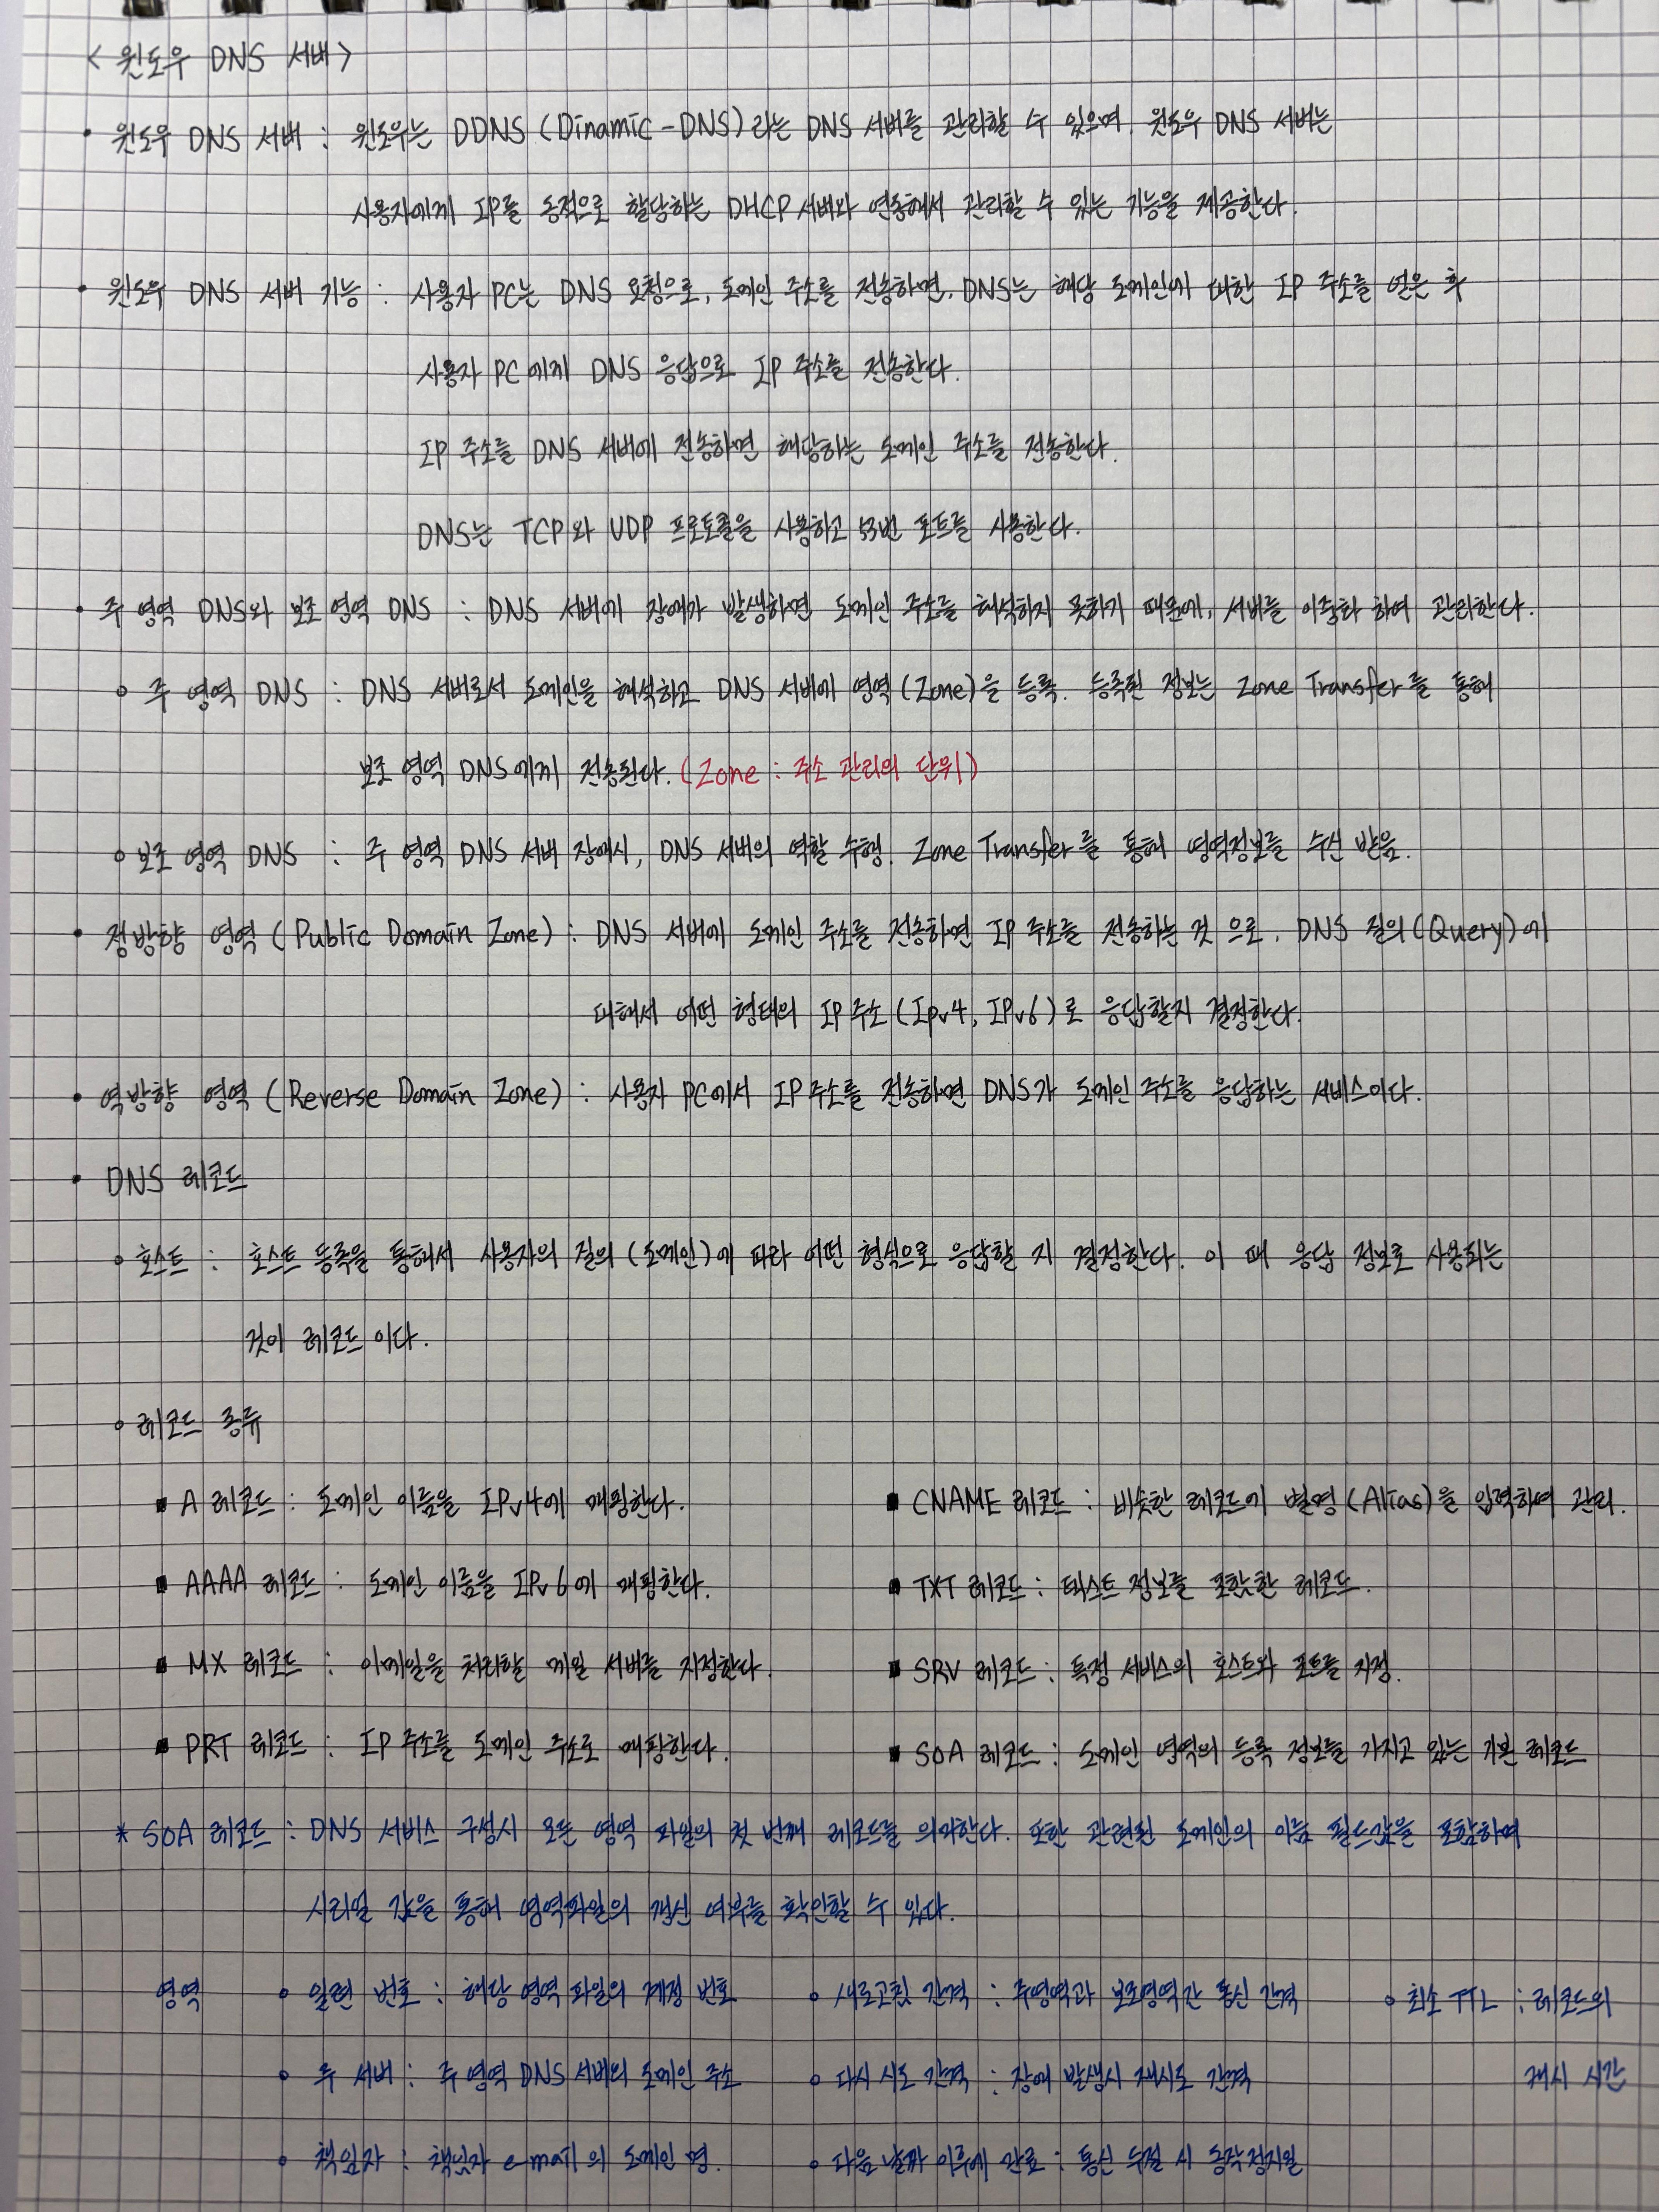 < 윈도우 DNS 서버 >
• 윈도우 DNS 서버 : 윈도우는 DDNS (Dinamic-DNS)라는 DNS 서버를 관리할 수 있으며, 윈도우 DNS 서버는
사용자에게 IP를 동적으로 할당하는 DHCP 서버와 연동해서 관리할 수 있는 기능을 제공한다.
• 윈도우 DNS 서버 기능 : 사용자 PC는 DNS 요청으로, 도메인 주소를 전송하면, DNS는 해당 도메인에 대한 IP 주소를 얻은 후
사용자 PC에게 DNS 응답으로 IP 주소를 전송한다.
IP 주소를 DNS 서버에 전송하면 해당하는 도메인 주소를 전송한다.
DNS는 TCP와 UDP 프로토콜을 사용하고 53번 포트를 사용한다.
• 주 영역 DNS와 보조 영역 DNS : DNS 서버에 장애가 발생하면 도메인 주소를 해석하지 못하기 때문에, 서버를 이중화 하여 관리한다.
◦ 주 영역 DNS : DNS 서버로서 도메인을 해석하고 DNS 서버에 영역(Zone)을 등록. 등록된 정보는 Zone Transfer를 통해
보조 영역 DNS에게 전송된다. (Zone : 주소 관리의 단위)
◦ 보조 영역 DNS : 주 영역 DNS 서버 장애시, DNS 서버의 역할 수행. Zone Transfer를 통해 영역정보를 수신 받음.
• 정방향 영역 (Public Domain Zone) : DNS 서버에 도메인 주소를 전송하면 IP 주소를 전송하는 것 으로, DNS 질의(Query)에
대해서 어떤 형태의 IP 주소 (Ipv4, IPv6)로 응답할지 결정한다.
• 역방향 영역 (Reverse Domain Zone) : 사용자 PC에서 IP 주소를 전송하면 DNS가 도메인 주소를 응답하는 서비스이다.
• DNS 레코드
◦ 호스트 : 호스트 등록을 통해서 사용자의 질의 (도메인)에 따라 어떤 형식으로 응답할 지 결정한다. 이 때 응답 정보로 사용되는
것이 레코드 이다.
◦ 레코드 종류
▪ A 레코드 : 도메인 이름을 IPv4에 매핑한다. ▪ CNAME 레코드 : 비슷한 레코드에 별명(Alias)을 입력하여 관리.
▪ AAAA 레코드 : 도메인 이름을 IPv6에 매핑한다. ▪ TXT 레코드 : 텍스트 정보를 포함한 레코드.
▪ MX 레코드 : 이메일을 처리할 메일 서버를 지정한다. ▪ SRV 레코드 : 특정 서비스의 호스트와 포트를 지정.
▪ PRT 레코드 : IP 주소를 도메인 주소로 매핑한다. ▪ SOA 레코드 : 도메인 영역의 등록 정보를 가지고 있는 기본 레코드
* SOA 레코드 : DNS 서비스 구성시 모든 영역 파일의 첫 번째 레코드를 의미한다. 또한 관련된 도메인의 이름 필드값을 포함하며
시리얼 값을 통해 영역파일의 갱신 여부를 확인할 수 있다.
영역 ◦ 일련 번호 : 해당 영역 파일의 계정 번호 ◦ 새로고침 간격 : 주영역과 보조영역간 통신 간격 ◦ 최소 TTL : 레코드의
◦ 주 서버 : 주 영역 DNS 서버의 도메인 주소 ◦ 다시 시도 간격 : 장애 발생시 재시도 간격 캐시 시간
◦ 책임자 : 책임자 e-mail의 도메인 명. ◦ 다음 날짜 이후에 만료 : 통신 두절 시 동작정지일